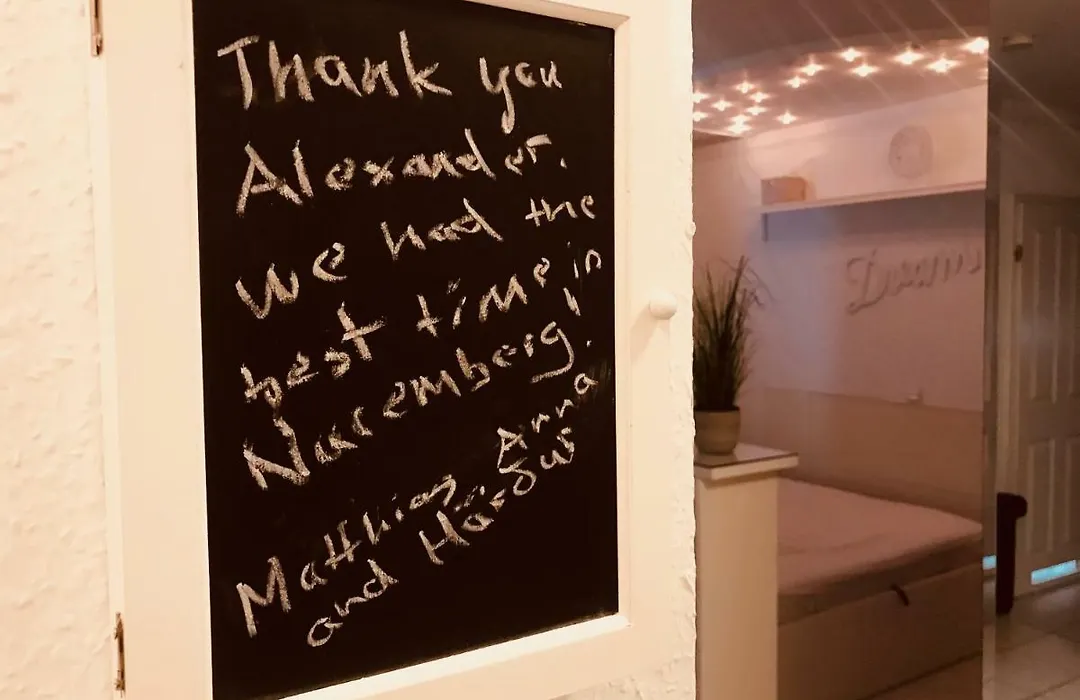 Thank you
Alexander.
We had the
best time in
Nuremberg!
Matthias, Anna
and
Dreams